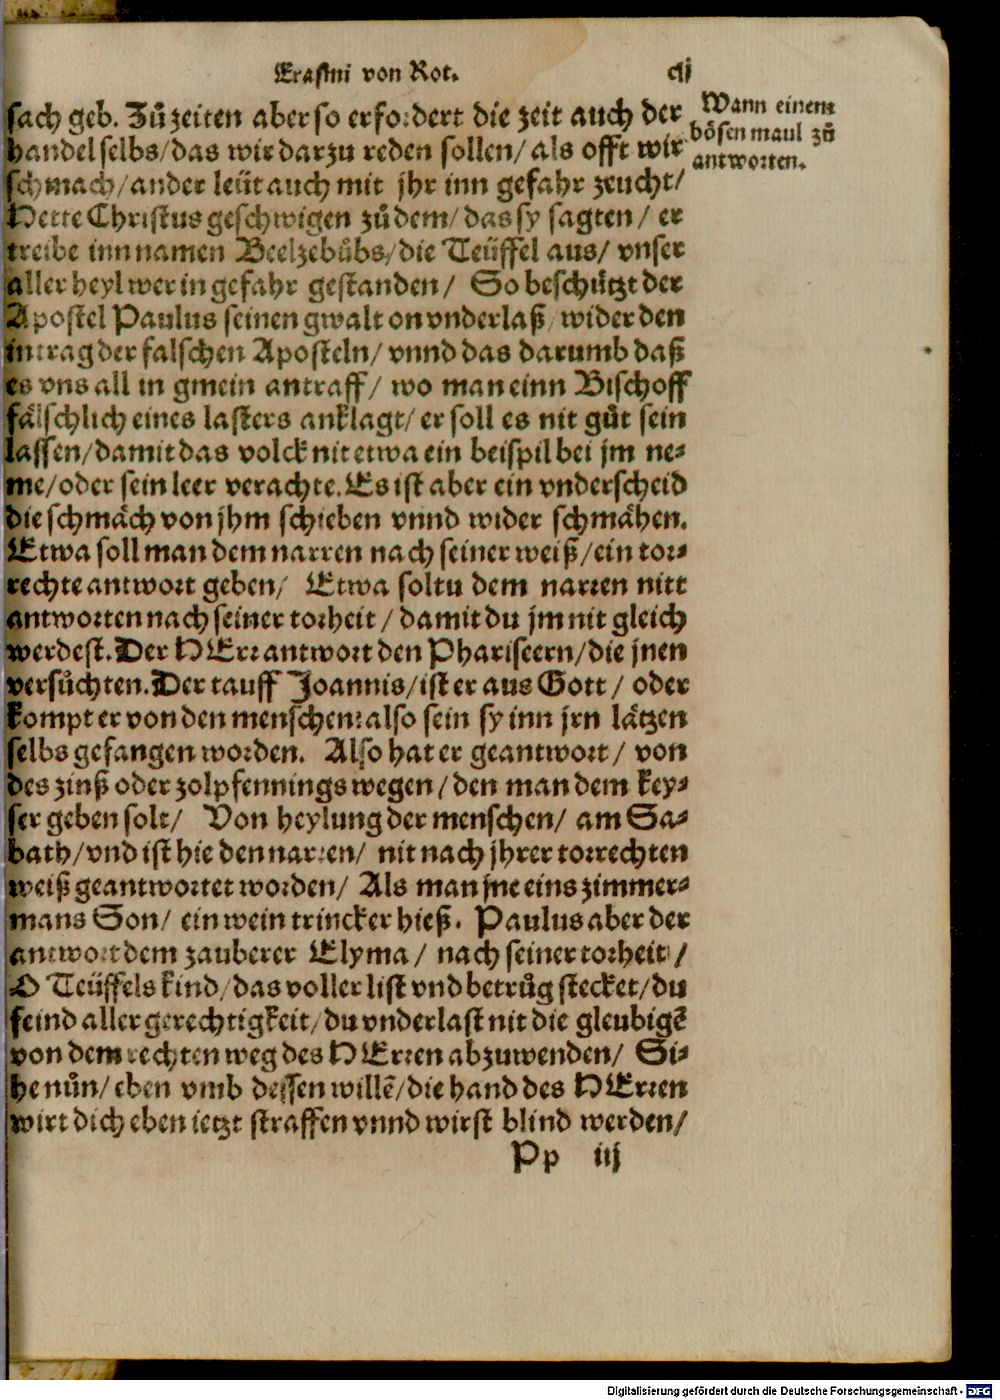 Erasmi von Rot. clj
sach geb. Zů zeiten aber so erfordert die zeit auch der
handel selbs/das wir darzu reden sollen/als offt wir
schmach/ander leüt auch mit jhr inn gefahr zeucht/
Hette Christus geschwigen zů dem/das sy sagten/ er
treibe inn namen Beelzebůbs/die Teüffel aus/ vnser
aller heyl wer in gefahr gestanden/ So beschützt der
Apostel Paulus seinen gwalt on vnderlaß/ wider den
intrag der falschen Aposteln/ vnnd das darumb daß
es vns all in gmein antraff/ wo man einn Bischoff
fälschlich eines lasters anklagt/ er soll es nit gůt sein
lassen/damit das volck nit etwa ein beispil bei jm ne-
me/oder sein leer verachte. Es ist aber ein vnderscheid
die schmäch von jhm schieben vnnd wider schmähen.
Etwa soll man dem narren nach seiner weiß/ein tor-
rechte antwort geben/ Etwa soltu dem narren nitt
antworten nach seiner torheit / damit du jm nit gleich
werdest. Der HErr antwort den Phariseern/die jnen
versůchten. Der tauff Joannis/ist er aus Gott / oder
kompt er von den menschen: also sein sy inn jrn lätzen
selbs gefangen worden. Also hat er geantwort / von
des zinß oder zolpfennings wegen/den man dem key-
ser geben solt/ Von heylung der menschen/ am Sa-
bath/vnd ist hie den narren/ nit nach jhrer torrechten
weiß geantwortet worden/ Als man jne eins zimmer-
mans Son/ ein weintrincker hieß. Paulus aber der
antwort dem zauberer Elyma / nach seiner torheit /
O Teüffels kind/das voller list vnd betrůg stecket/du
feind aller gerechtigkeit/du vnderlast nit die gleubigẽ
von dem rechten weg des HErren abzuwenden/ Si-
he nůn/ eben vmb dessen willẽ/die hand des HErren
wirt dich eben ietzt straffen vnnd wirst blind werden/
Pp iij
Wann einem
bösen maul zů
antworten.
Digitalisierung gefördert durch die Deutsche Forschungsgemeinschaft - DFG